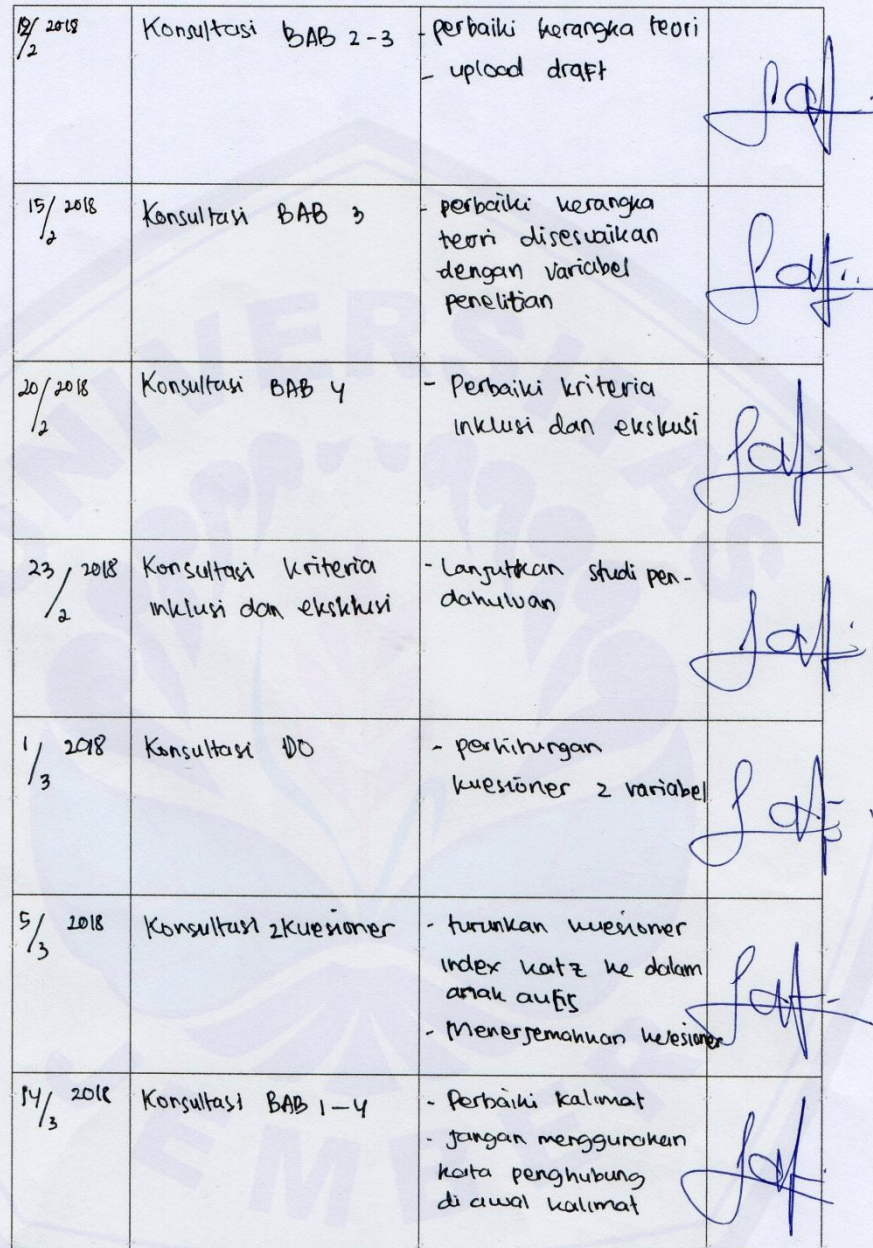 12/2 2018 Konsultasi BAB 2-3 - perbaiki kerangka teori
- upload draft
15/2 2018 Konsultasi BAB 3 - perbaiki kerangka
teori disesuaikan
dengan variabel
penelitian
20/2 2018 Konsultasi BAB 4 - Perbaiki kriteria
inklusi dan ekskusi
23/2 2018 Konsultasi kriteria - Lanjutkan studi pen-
inklusi dan eksklusi dahuluan
1/3 2018 Konsultasi DO - perhitungan
kuesioner 2 variabel
5/3 2018 Konsultasi 2 kuesioner - turunkan kuesioner
index katz ke dalam
anak autis
- Menerjemahkan kuesioner
14/3 2018 Konsultasi BAB 1-4 - Perbaiki kalimat
- jangan menggunakan
kata penghubung
di awal kalimat
UNIVERSITAS
JEMBER